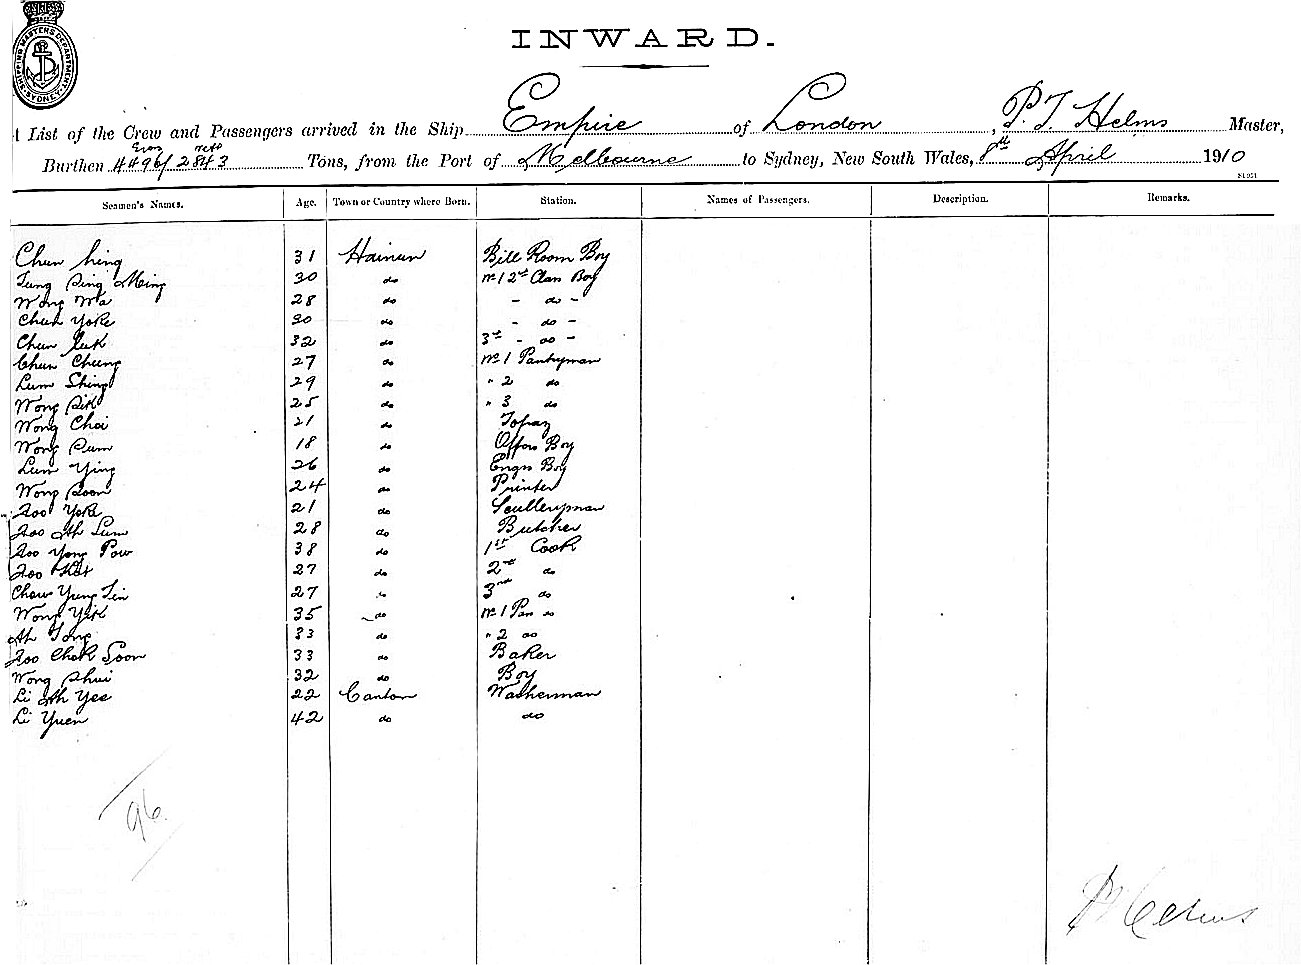 SHIPPING MASTERS DEPARTMENT SYDNEY
INWARD.
List of the Crew and Passengers arrived in the Ship Empire of London, P. T. Helms Master,
Gross nett
Burthen 4496/2843 Tons, from the Port of Melbourne to Sydney, New South Wales, 8th April 1910
Seamen's Names. Age. Town or Country where Born. Station. Names of Passengers. Description. Remarks.
Chun hing 31 Hainan Bill Room Boy
Tung Sing Ming 30 do No 1 2nd Class Boy
Wong Wa 28 do - do -
Chun Yoke 30 do - do -
Chun 32 do 3rd - do -
Chun Cheung 27 do No 1 Pantryman
Lum Shing 29 do " 2 do
Wong Sik 25 do " 3 do
Wong Choi 21 do Topaz
Wong Sum 18 do Offrs Boy
Lum Ying 26 do Engrs Boy
Wong Soon 24 do Printer
Foo Yoke 21 do Sculleryman
Foo Ah Lum 28 do Butcher
Foo Yong Pow 38 do 1st Cook
Foo 27 do 2nd do
Chow Yung Lin 27 do 3rd do
Wong Yik 35 do No 1 Pan do
Ah Tong 33 do " 2 do
Foo Chok Soon 33 do Baker
Wong Shui 32 do Boy
Li Ah Yee 22 Canton Washerman
Li Yuen 42 do do
96
P T Helms